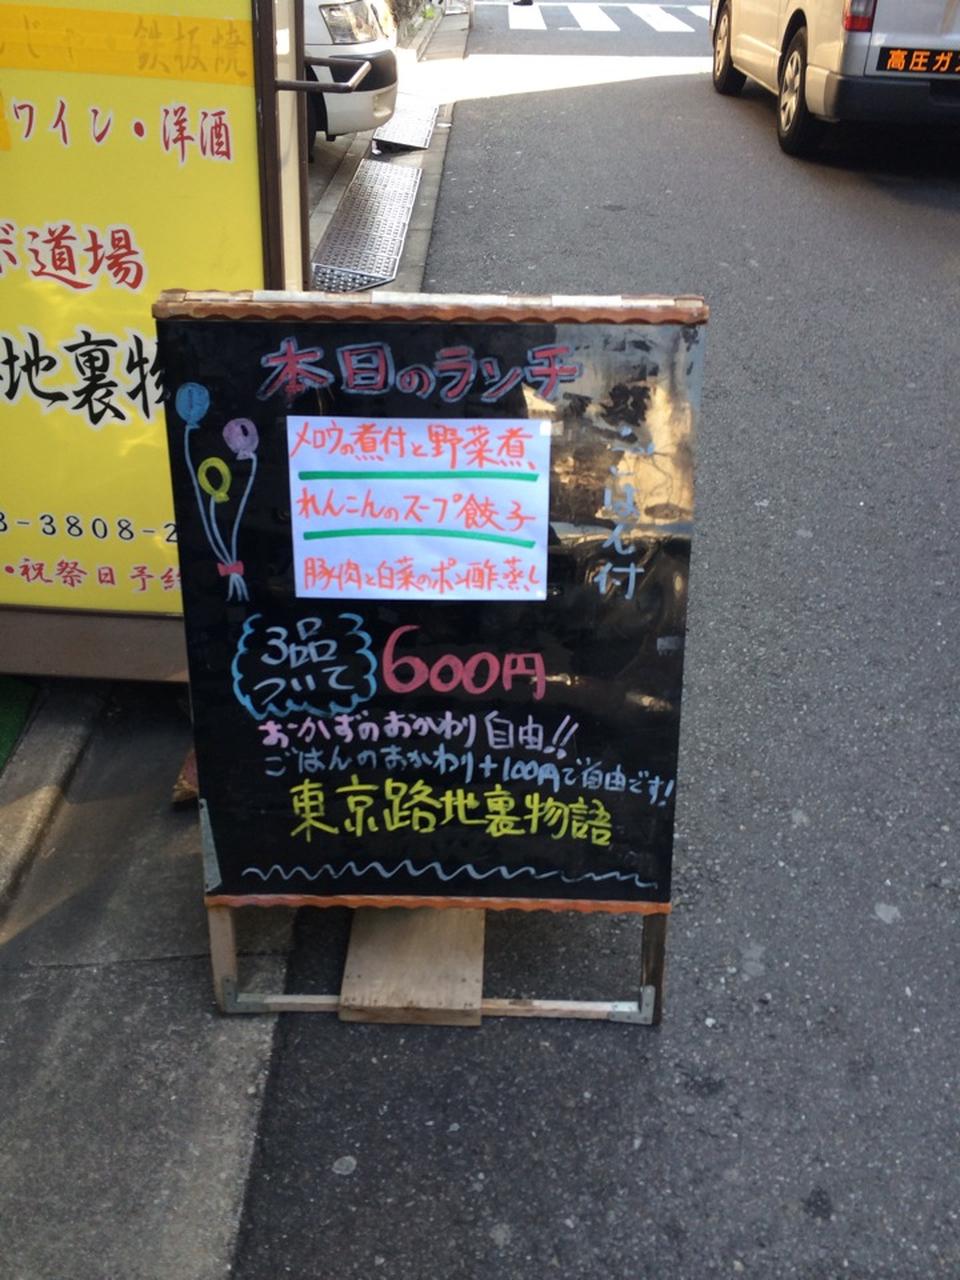 鉄板焼
ワイン・洋酒
道場
地裏物
3-3808-2
・祝祭日予約
高圧ガス
本日のランチ
メロウの煮付と野菜煮、
れんこんのスープ餃子
豚肉と白菜のポン酢蒸し
ごはん付
3品
ついて
600円
おかずのおかわり自由!!
ごはんのおかわり+100円で自由です!
東京路地裏物語